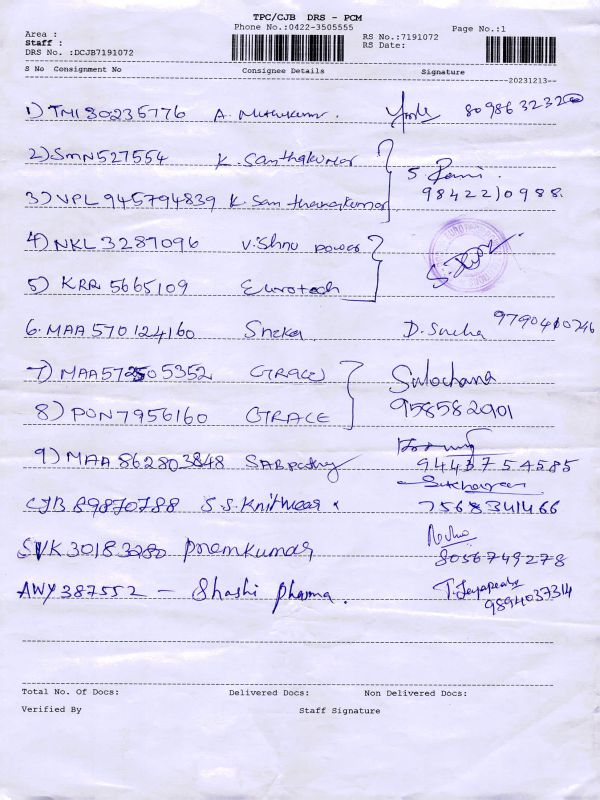 TPC/CJB DRS - PCM
Phone No.:0422-3505555
Page No.:1
Area :
Staff :
DRS No. :DCJB7191072
RS No.:7191072
RS Date:
S No Consignment No Consignee Details Signature
20231213
1) TMI 80235776 A. Muthukumar. 8098632320
2) SMN527554 K. Santhakumar
5 Rani
3) VPL 945794839 K. Santhanakumar 9842210988.
4) NKL 3287096 Vishnu power
5) KRR 5665109 Eurotech
6. MAA 570124160 Sneka D. Sneha 9790410246
7) MAA572505352 GRACE Sulochana
8) PON7956160 GRACE 958582901
9) MAA 862803848 9443754585
CJB 89870788 S.S. Knitwear 7568341466
SVK30183280 premkumar 8056749278
AWY387552 - Shashi pharma. 9894037314
Total No. Of Docs: Delivered Docs: Non Delivered Docs:
Verified By Staff Signature